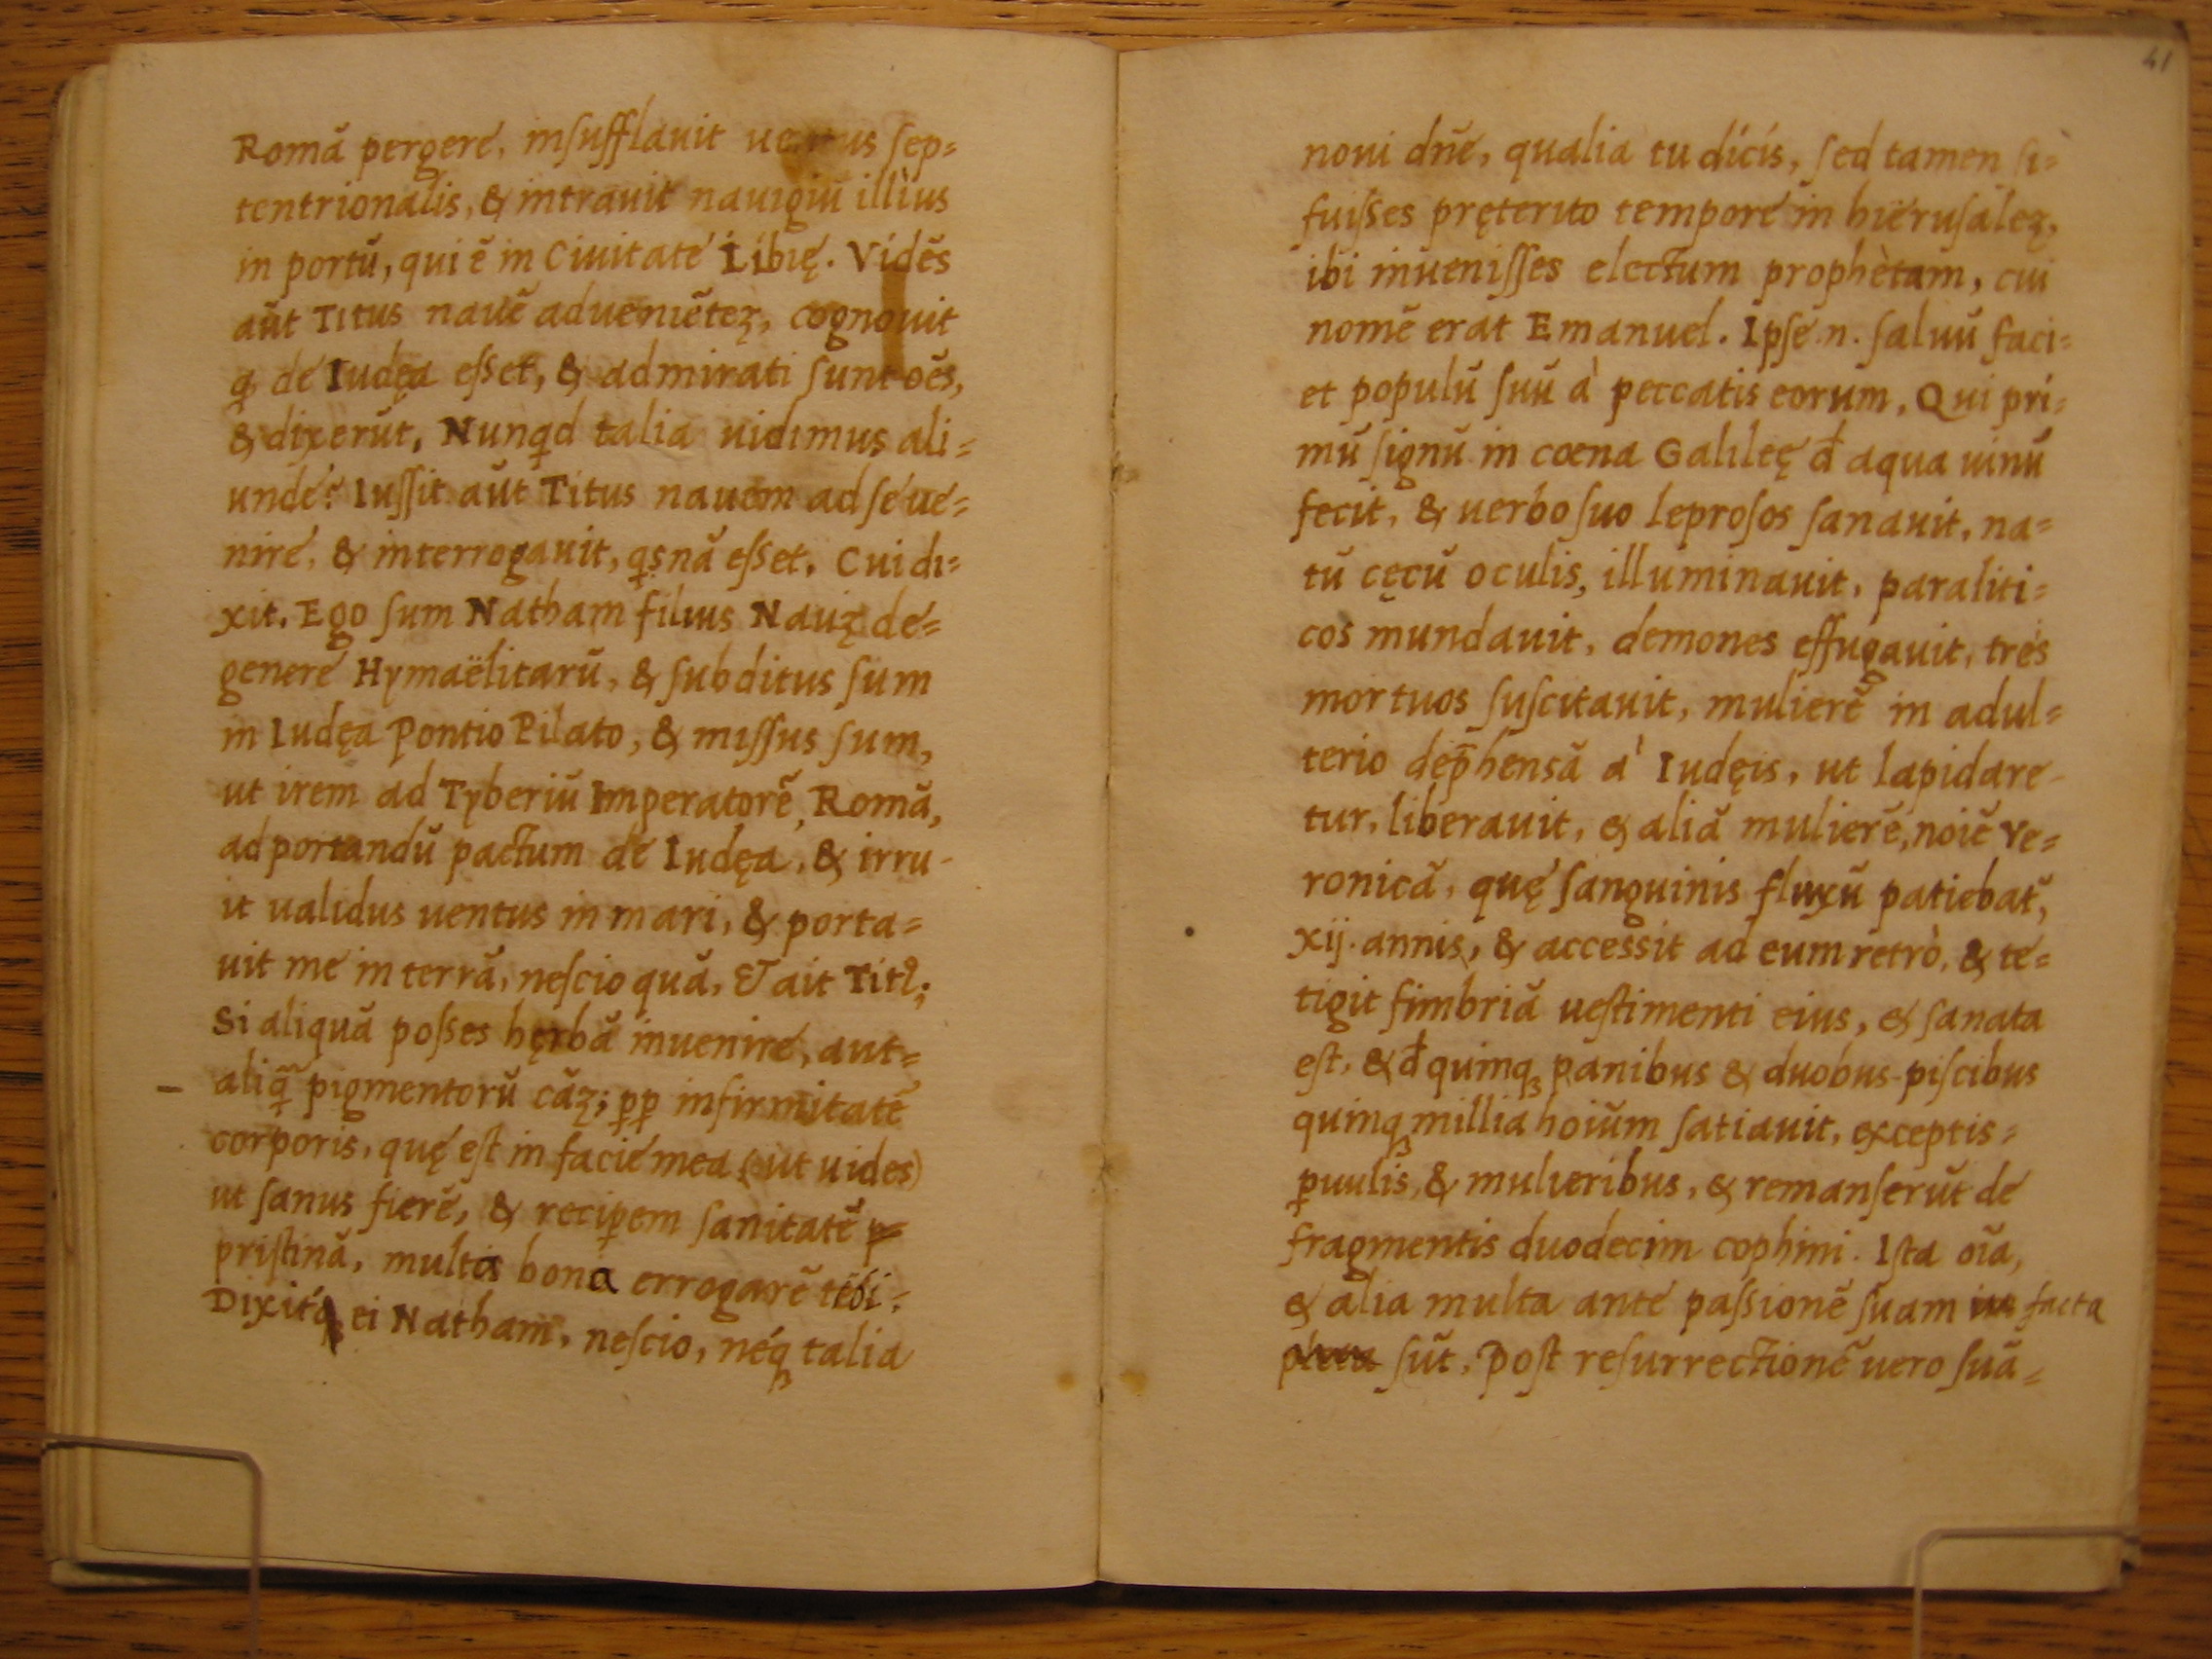 Romā pergere, inſufflauit uentus ſep=
tentrionalis, & intrauit nauigiū illius
in portū, qui ē in Ciuitate Libię. Vidēs
aūt Titus nauē adueniētez, cognouit
ꝙ de Iudęa eſset, & admirati ſunt oēs,
& dixerūt, Nunqd talia uidimus ali=
unde? Iuſſit aūt Titus nauem ad ſe ue=
nire, & interrogauit, qsnā eſset. Cui di=
xit. Ego ſum Natham filius Nauȝ de=
genere Hymaëlitarū, & ſubditus ſum
in Iudęa Pontio Pilato, & miſſus ſum,
ut irem ad Tyberiū Imperatorē, Romā,
ad portandū pactum de Iudęa, & irru-
it ualidus uentus in mari, & porta=
uit me in terrā, neſcio quā, & ait Titꝰ;
Si aliquā poſses hęrbā inuenire, aut=
aliq̄ pigmentorū cāȝ; ꝓp infirmitatē
corporis, quę eſt in facie mea (ut uides)
ut ſanus fierē, & reciꝑem ſanitatē
priſtinā, multa bona errogarē tibi.
Dixitq ei Natham, neſcio, néqꝫ talia
41
noui dn̄e, qualia tu dicis, ſed tamen ſi=
fuiſses pręterito tempore in hieruſalez,
ibi inueniſſes electum prophetam, cui
nomē erat Emanuel. Ipſe.n. ſaluū faci=
et populū ſuū à peccatis eorum, Qui pri=
mū ſignū in cœna Galileę đ aqua uinū
fecit, & uerbo ſuo leproſos ſanauit, na=
tū cęcū oculis, illuminauit, paraliti=
cos mundauit, demones effugauit, tres
mortuos ſuſcitauit, mulierē in adul=
terio dep̄hensā à Iudęis, ut lapidare-
tur, liberauit, & aliā mulierē, noiē Ve=
ronicā, quę ſanguinis fluxū patiebat᷑,
xij. annis, & acceſsit ad eum retrò, & te=
tigit fimbriā ueſtimenti eius, & ſanata
eſt, & đ quinqꝫ panibus & duobus piſcibus
quinqꝫ millia hoiūm ſatiauit, exceptis=
ꝑuulis, & mulieribus, & remanſerūt de
fragmentis duodecim cophini. Iſta oīa,
& alia multa ante paſsionē ſuam facta
ſūt, Poſt reſurrectionē uero ſuā=